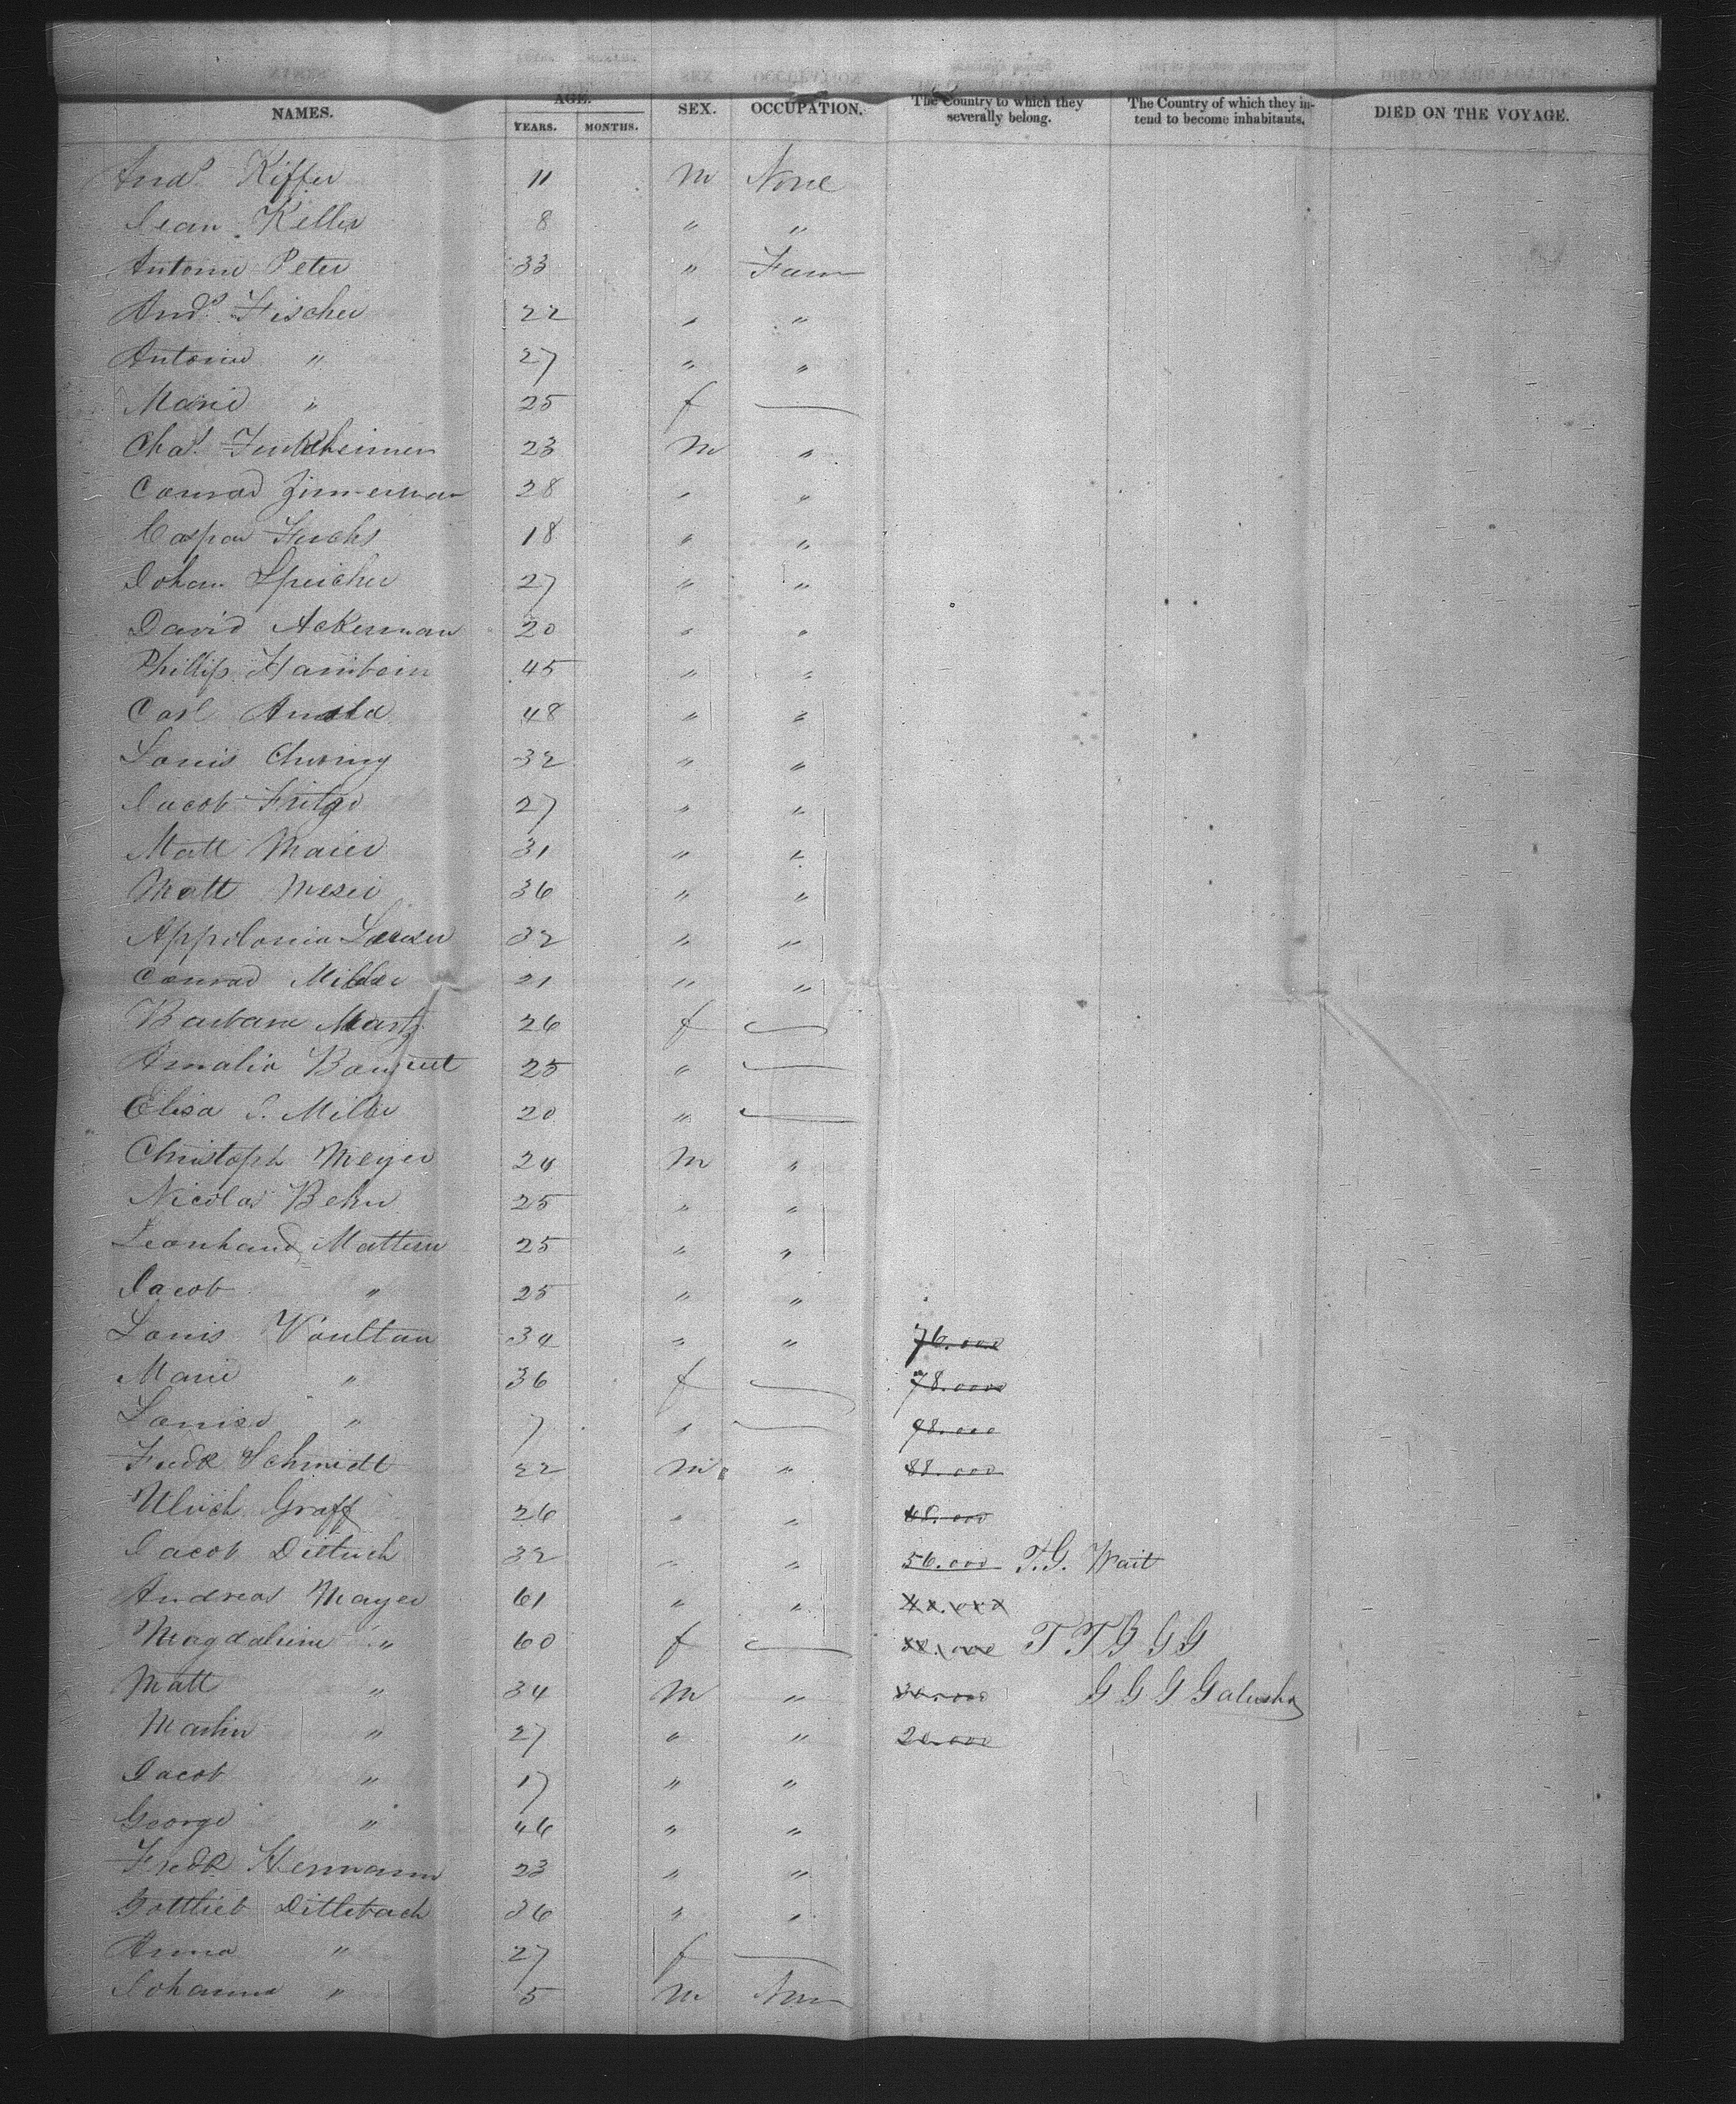 NAMES. AGE. YEARS. MONTHS. SEX. OCCUPATION. The Country to which they severally belong. The Country of which they intend to become inhabitants. DIED ON THE VOYAGE.
And.s Kiffer 11 m None
Jean Keller 8 " "
Antoine Peter 33 " Farm
And.s Fischer 22 " "
Antoine " 27 " "
Marie " 25 f —
Cha.s 23 m "
Conrad Zimmerman 28 " "
Caspar Fuchs 18 " "
Johan Speicher 27 " "
David Ackerman 20 " "
Phillip Hambein 45 " "
Carl Arnold 48 " "
Louis 32 " "
Jacob Fritze 27 " "
Matt Maier 31 " "
Matt Meser 36 " "
Appilonia 32 " "
Conrad Miller 21 " "
Barbara Martz 26 f —
Amalia 25 " —
Elisa S. Miller 20 " —
Christoph Meyer 24 m "
Nicolas Behn 25 " "
Leonhard Mattern 25 " "
Jacob " 25 " "
Louis Voultan 34 " " 76.000
Marie " 36 f — 78.000
Louise " 7 " — 98.000
Fredk Schmidt 22 m " 88.000
Ulrich Graff 26 " "
Jacob Dittrich 32 " " 56.000 T.G. Wait
Andreas Mayer 61 " "
Magdaleine " 60 f — T T G G G
Matt " 34 m " 30.000 G G G Galusha
Martin " 27 " " 20.000
Jacob " 17 " "
George " 46 " "
Fredk Hermann 23 " "
Gottlieb Dittebach 36 " "
Anna " 27 f —
Johanna " 5 m Non